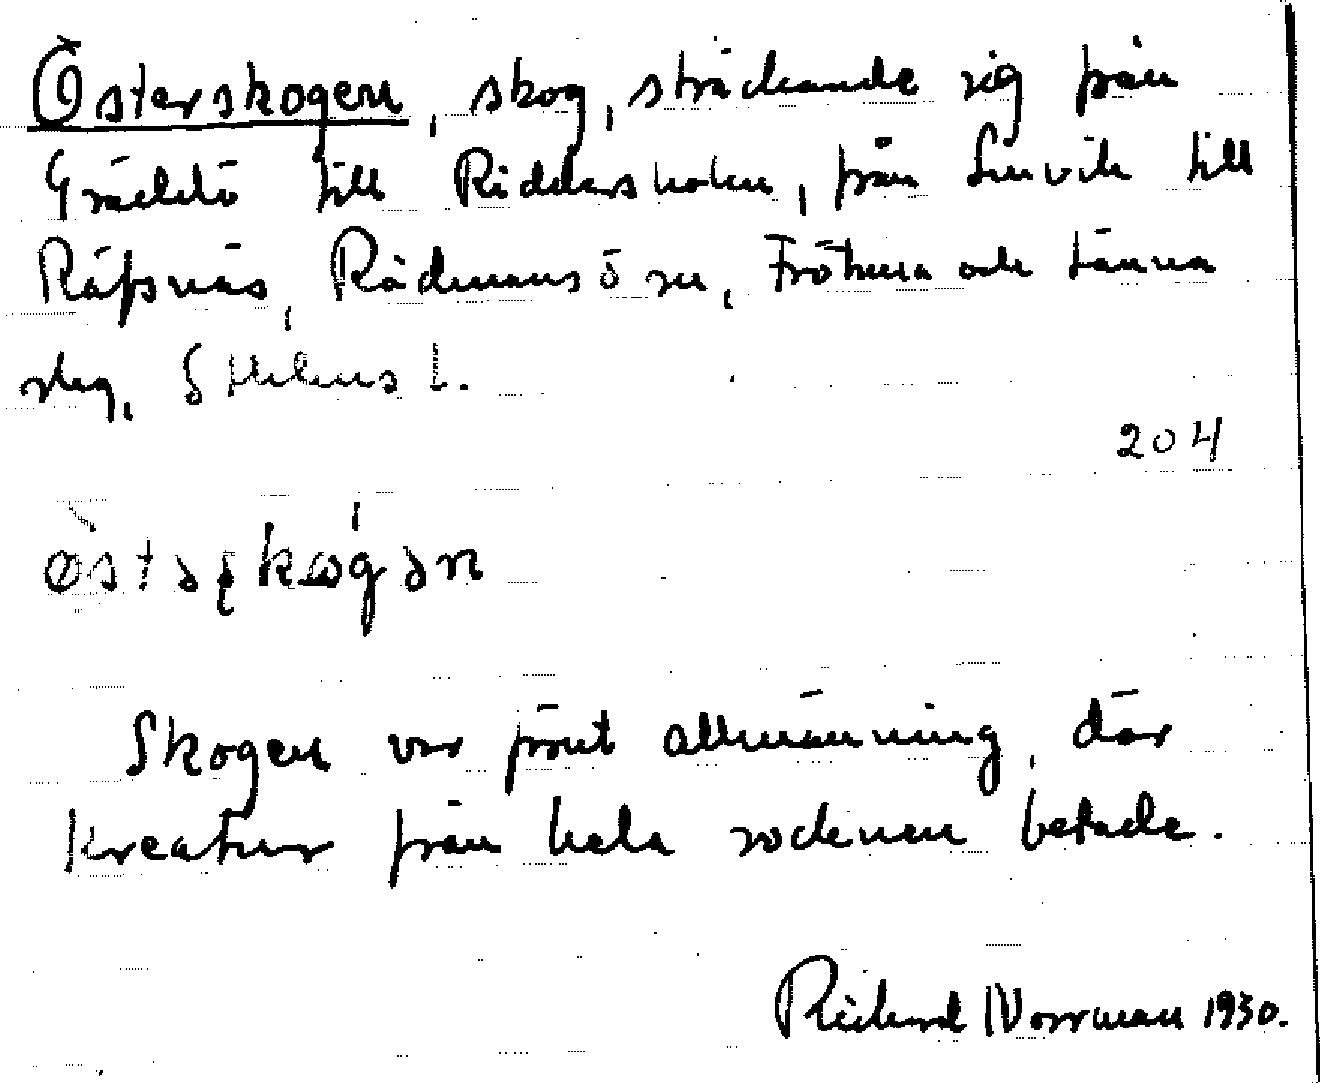 Österskogen, skog, sträckande sig från
Gräddö till Riddersholm, från Senvik till
Räfsnäs, Rådmansö sn, Frötuna och Länna
slg, Sthlms l.
204
Skogen var förut allmänning, där
kreatur från hela socknen betade.
Richard Norrman 1930.